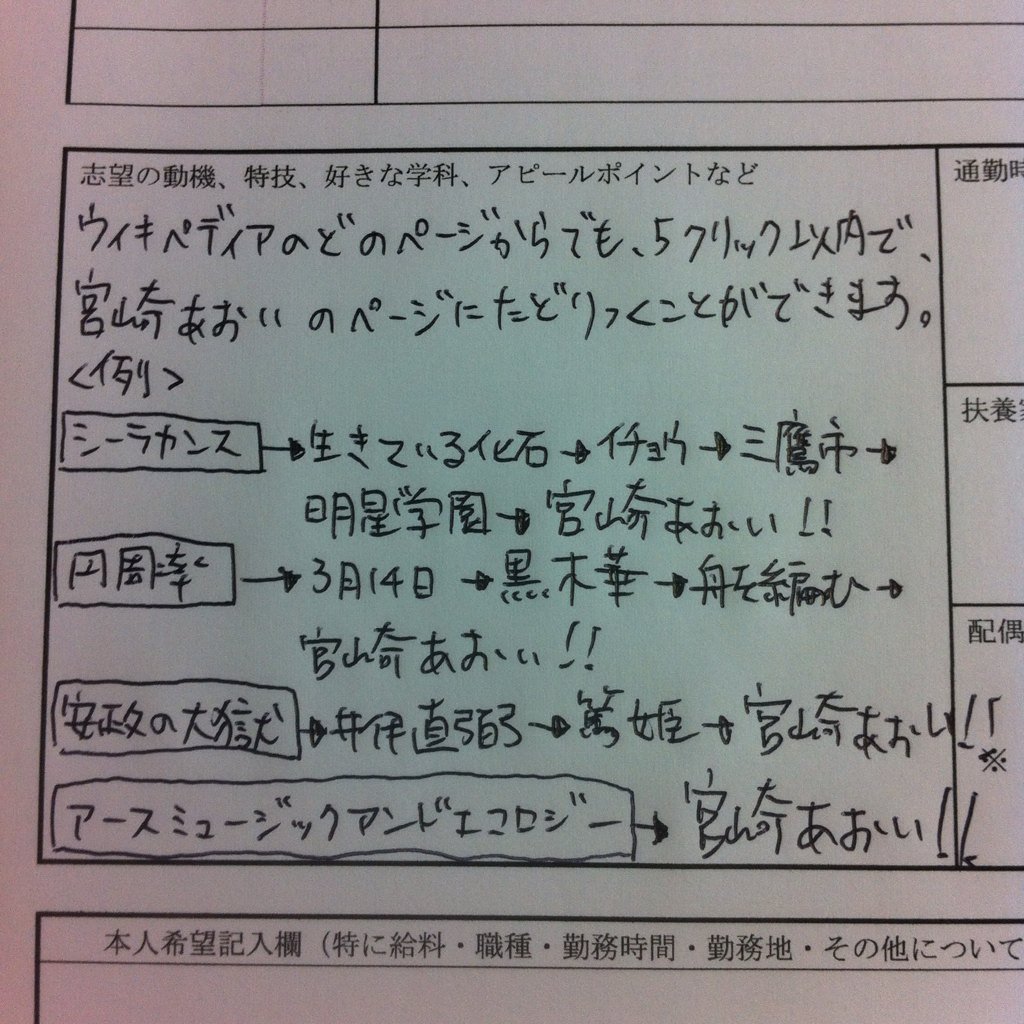 志望の動機、特技、好きな学科、アピールポイントなど
通勤時
ウィキペディアのどのページからでも、5クリック以内で、
宮崎あおいのページにたどりつくことができます。
<例>
シーラカンス→生きている化石→イチョウ→三鷹市→
扶養家
明星学園→宮崎あおい!!
円周率→3月14日→黒木華→舟を編む→
配偶
宮崎あおい!!
安政の大獄→井伊直弼→篤姫→宮崎あおい!!
※
アースミュージックアンドエコロジー→宮崎あおい!!
本人希望記入欄(特に給料・職種・勤務時間・勤務地・その他について